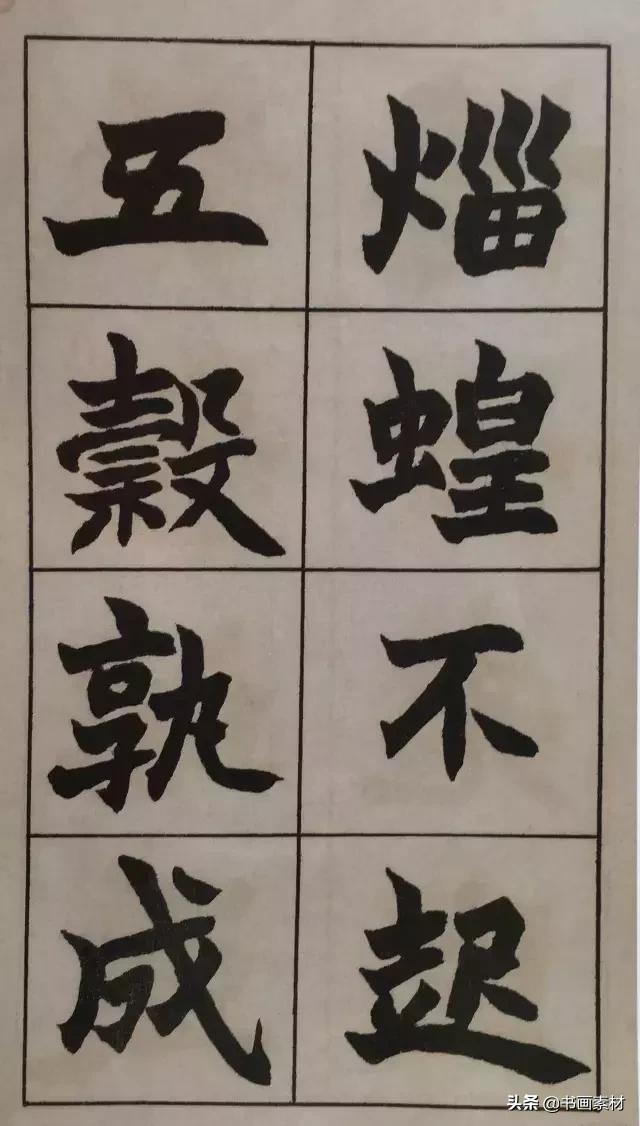 蝗不起
五穀孰成
头条 @书画素材